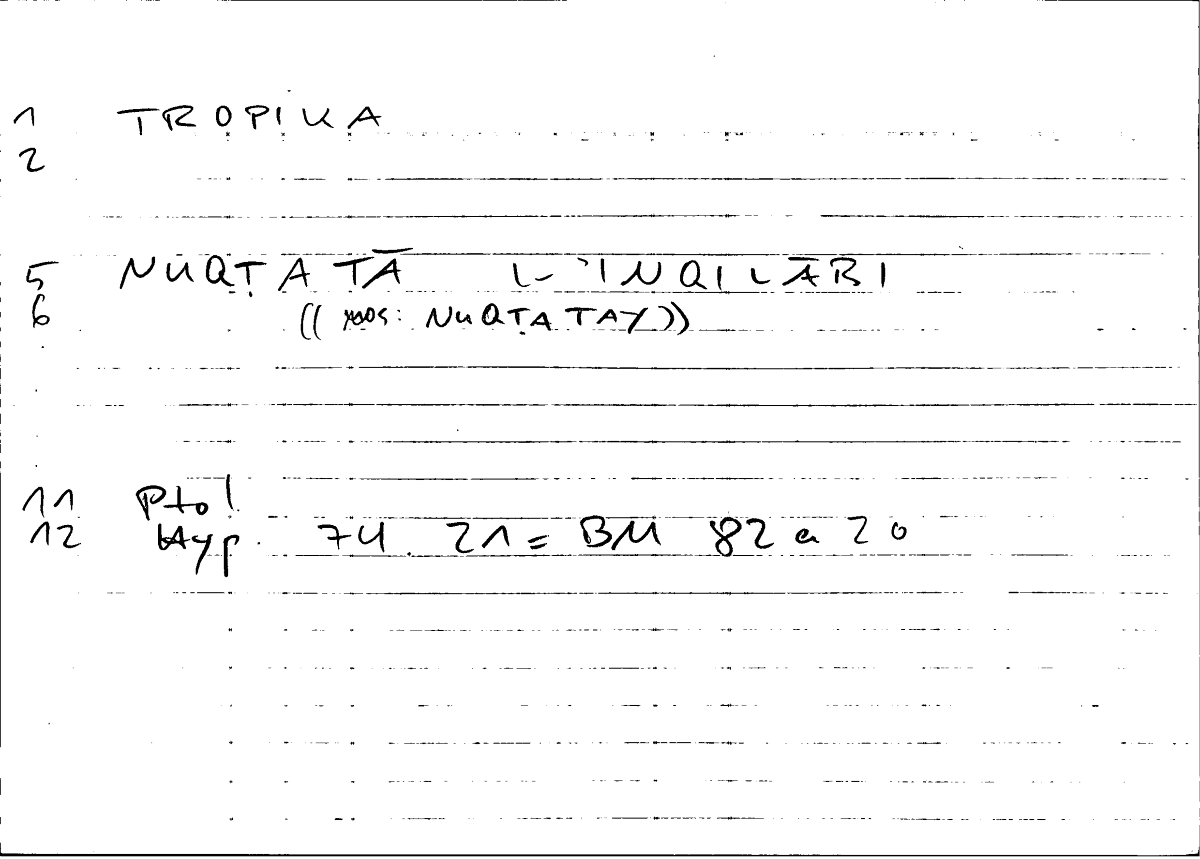 1 TROPIKA
2
5 NUQṬATĀ L-'INQILĀBI
6 ((mss: NUQṬATAY))
11 Ptol.
12 Hyp. 74. 21 = BM 82 a 20